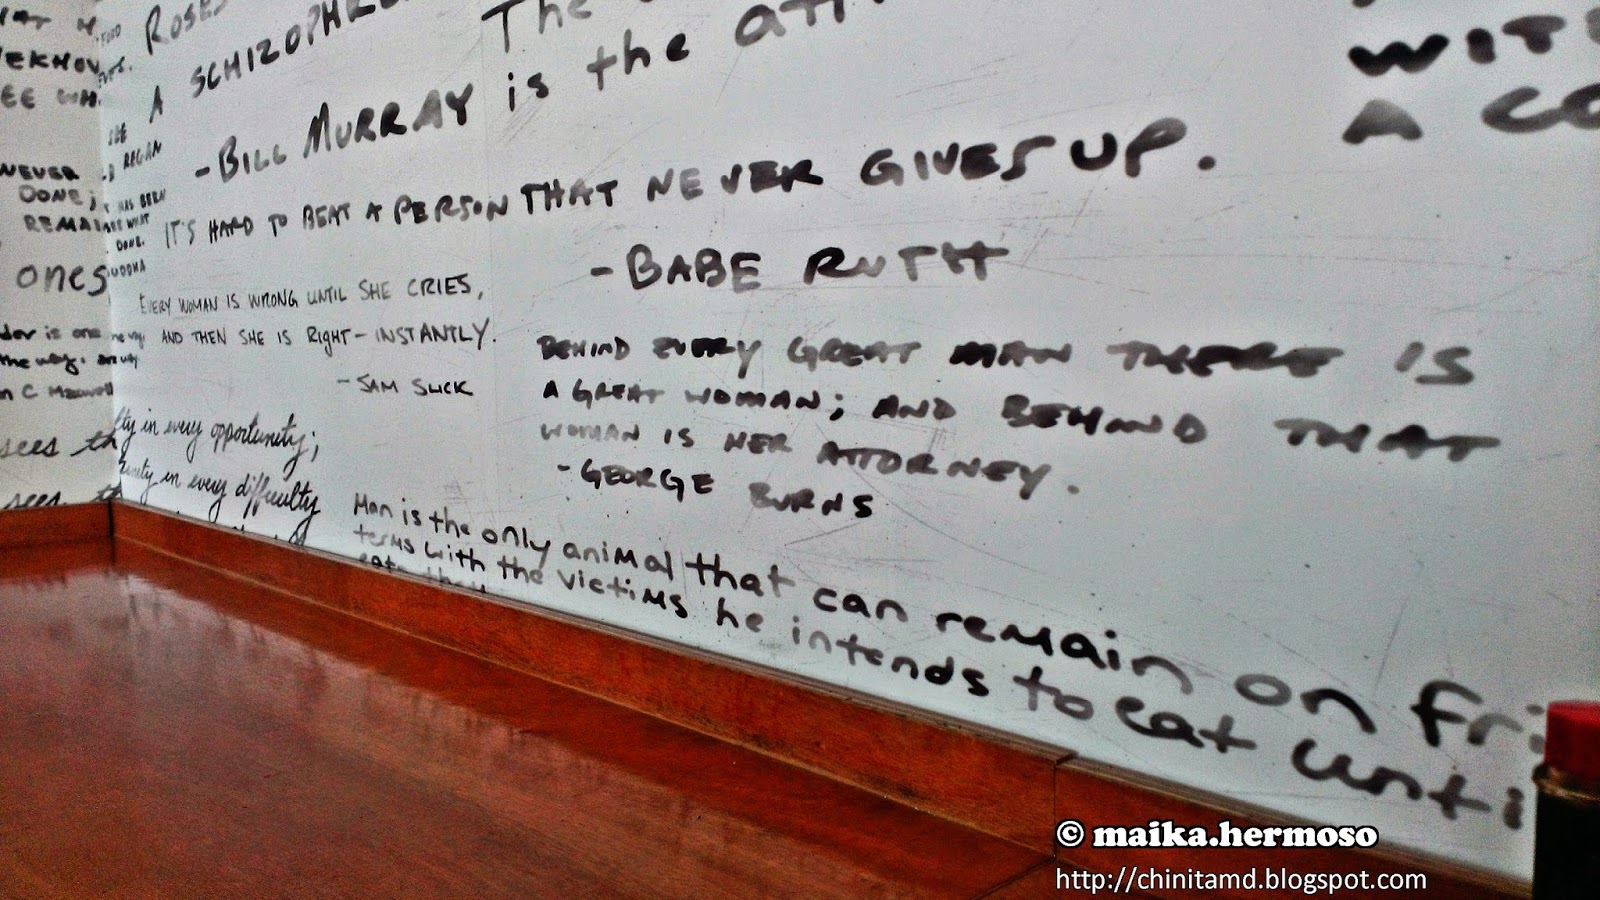 ROSES
A SCHIZOPHRE
-BILL MURRAY
The
is the att
WIT
A CO
IT'S HARD TO BEAT A PERSON THAT NEVER GIVES UP.
-BABE RUTH
EVERY WOMAN IS WRONG UNTIL SHE CRIES,
AND THEN SHE IS RIGHT-INSTANTLY.
-SAM SLICK
BEHIND EVERY GREAT MAN THERE IS
A GREAT WOMAN; AND BEHIND THAT
WOMAN IS HER ATTORNEY.
-GEORGE BURNS
NEVER
DONE;
REMAI
HAS BEEN
WHAT
DONE.
ones
is one
the way.
C Maxwell
sees th
lty in every opportunity;
sees th
unity in every difficulty
Man is the only animal that can remain on fri
terms with the victims he intends to eat unti
© maika.hermoso
http://chinitamd.blogspot.com